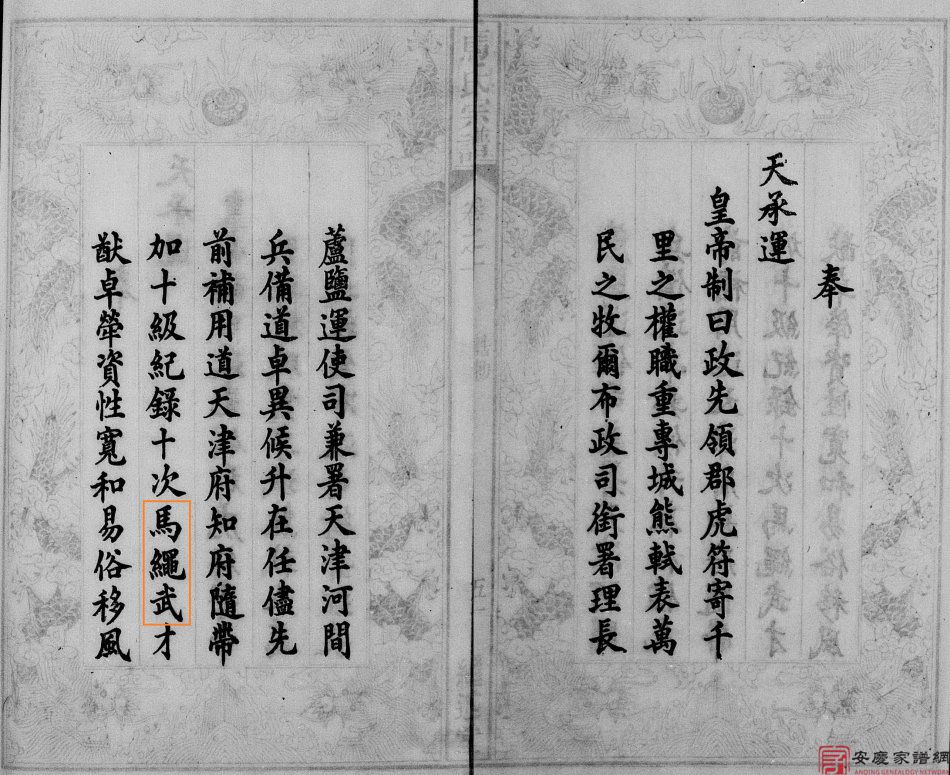 奉
天承運
皇帝制曰政先領郡虎符寄千
里之權職重專城熊軾表萬
民之牧爾布政司銜署理長
蘆鹽運使司兼署天津河間
兵備道卓異候升在任儘先
前補用道天津府知府隨帶
加十級紀錄十次馬繩武才
猷卓犖資性寬和易俗移風
安慶家譜網
ANQING GENEALOGY NETWORK